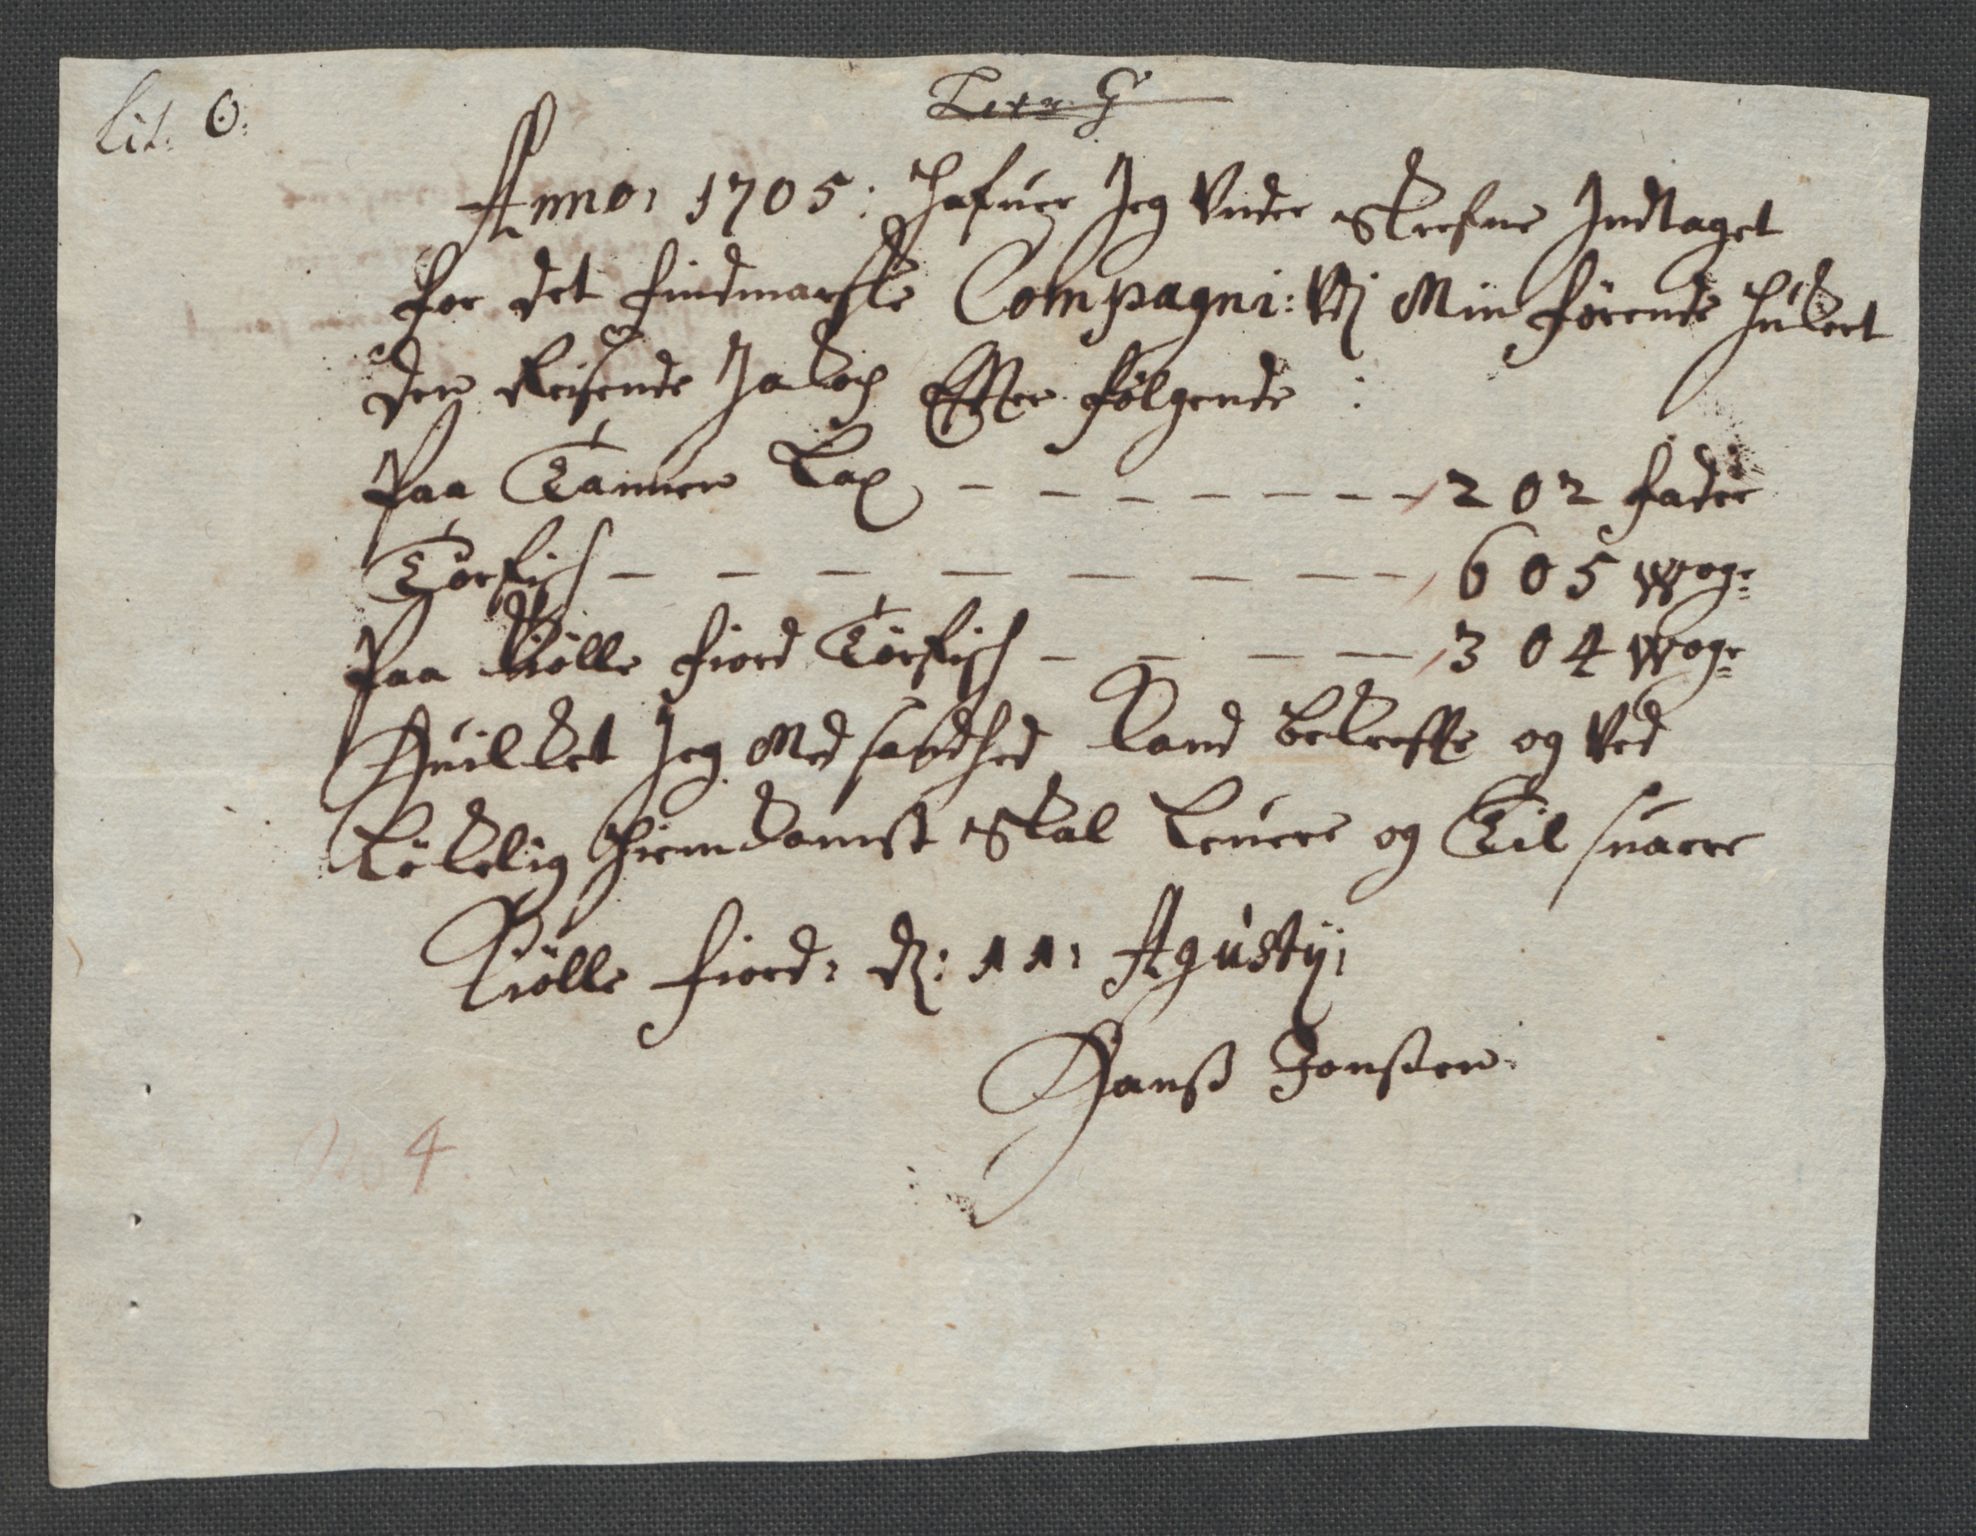 Lit. O.
Litr. G
Anno 1705: Hafuer Jeg Vnder Skrefne Jndtaget
for det findmarske Compagni: Vdj Min førende Hukert
den Reisende Jakop Effter følgende:
Paa Tannen Lax 202 fader
Törfisch 605 Wog:
Paa Kiölle fiord Törfisch 304 Wog:
Huilket Jeg Med sandhed kand bekreffte og Ved
Lökelig Hiemkomst Skal Leuere og Til suarre
Kiölle fiord: d: 11: Agusty:
Hanß Jonßen
No 4.